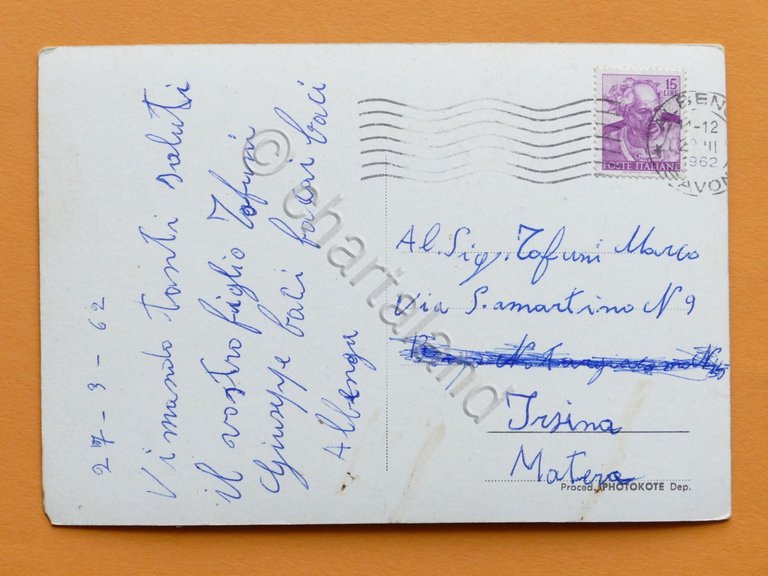 27-3-62
Vi mando tanti saluti
il vostro figlio Tofuni
Giuseppe baci bacini baci
Albenga
15
LIRE
POSTE ITALIANE
BEN
-12
1962
SAVON
Al. Sig. Tofuni Marco
Via S.amartino N 9
Irsina
Matera
Proced. "PHOTOKOTE Dep.
© chartaland